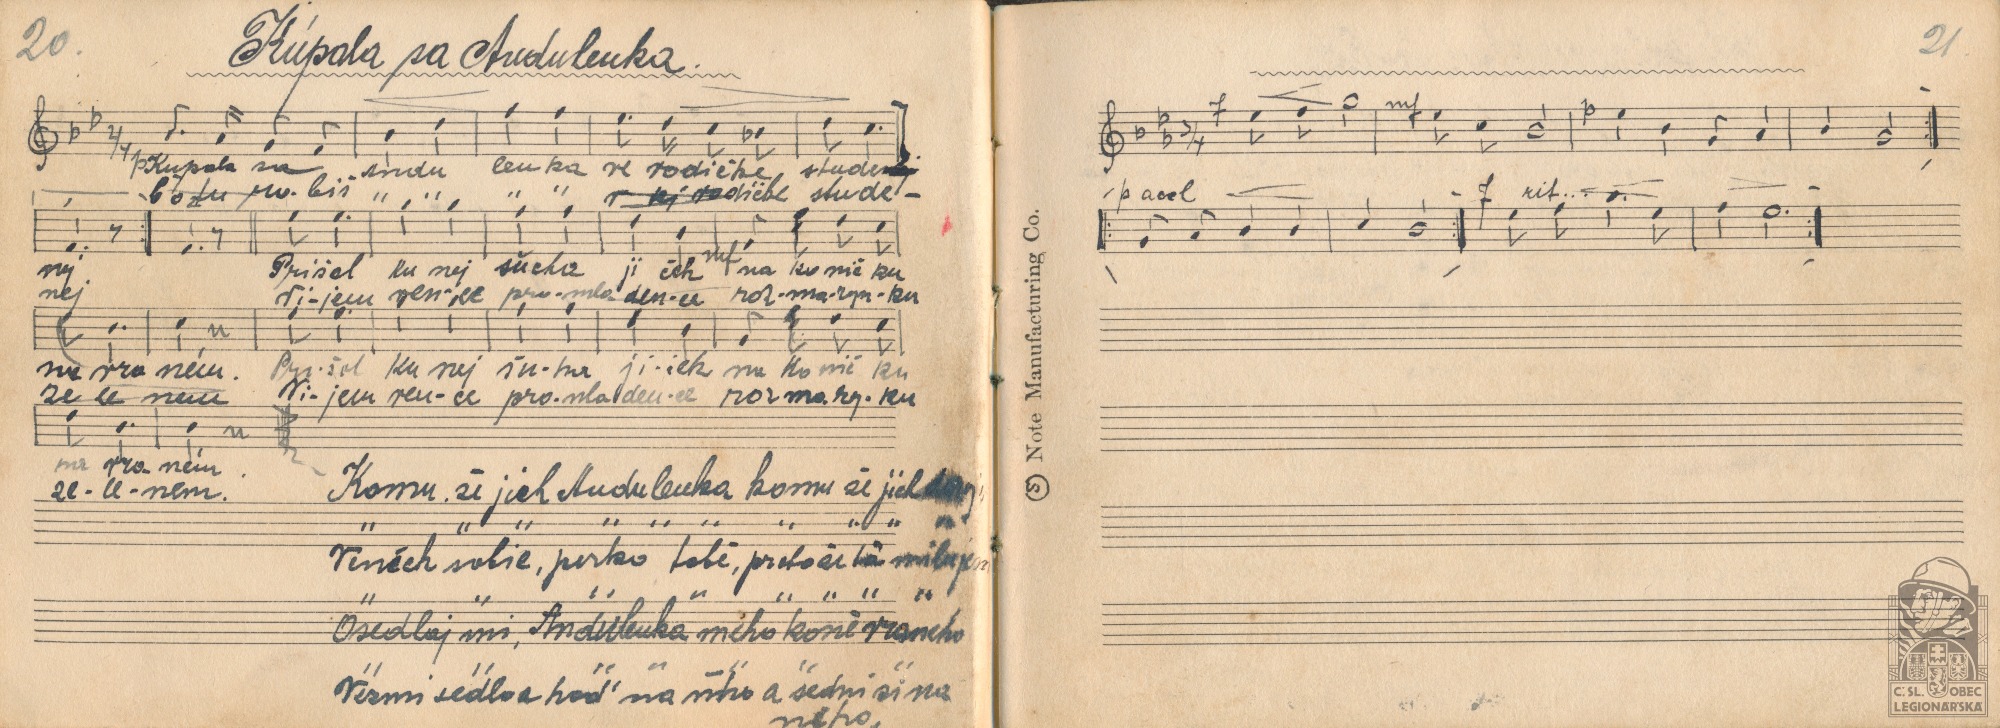 20.
Kúpala sa Andulenka.
p Kupala sa andu lenka ve vodičke studenej
robiš " " " " vodičke stude-
nej Prišel ku nej šuha ji ček mf na ko nič ku
nej Vi-jem ven-ce pro-mla den-ce roz-ma-ryn-ku
na vra ném. Pri-šel ku nej šu-ha ji-ček na ko nič ku
ze le nem Vi-jem ven-ce pro-mla den-ce roz ma-ry-ku
na vra-ném.
ze-le-nem. Komu že jich Andulenka komu že jich
" " " " " " " " "
Venček sobie, perko tobě, pretože ťa milujem
" " " " " " "
Osedlaj mi, Andulenka mého koně vraneho
" " " " " "
Vezmi sedlo a hoď na něho a sedni si na
něho.
21.
f mf p
p acel f rit.
Note Manufacturing Co.
Č. SL. OBEC
LEGIONÁŘSKÁ